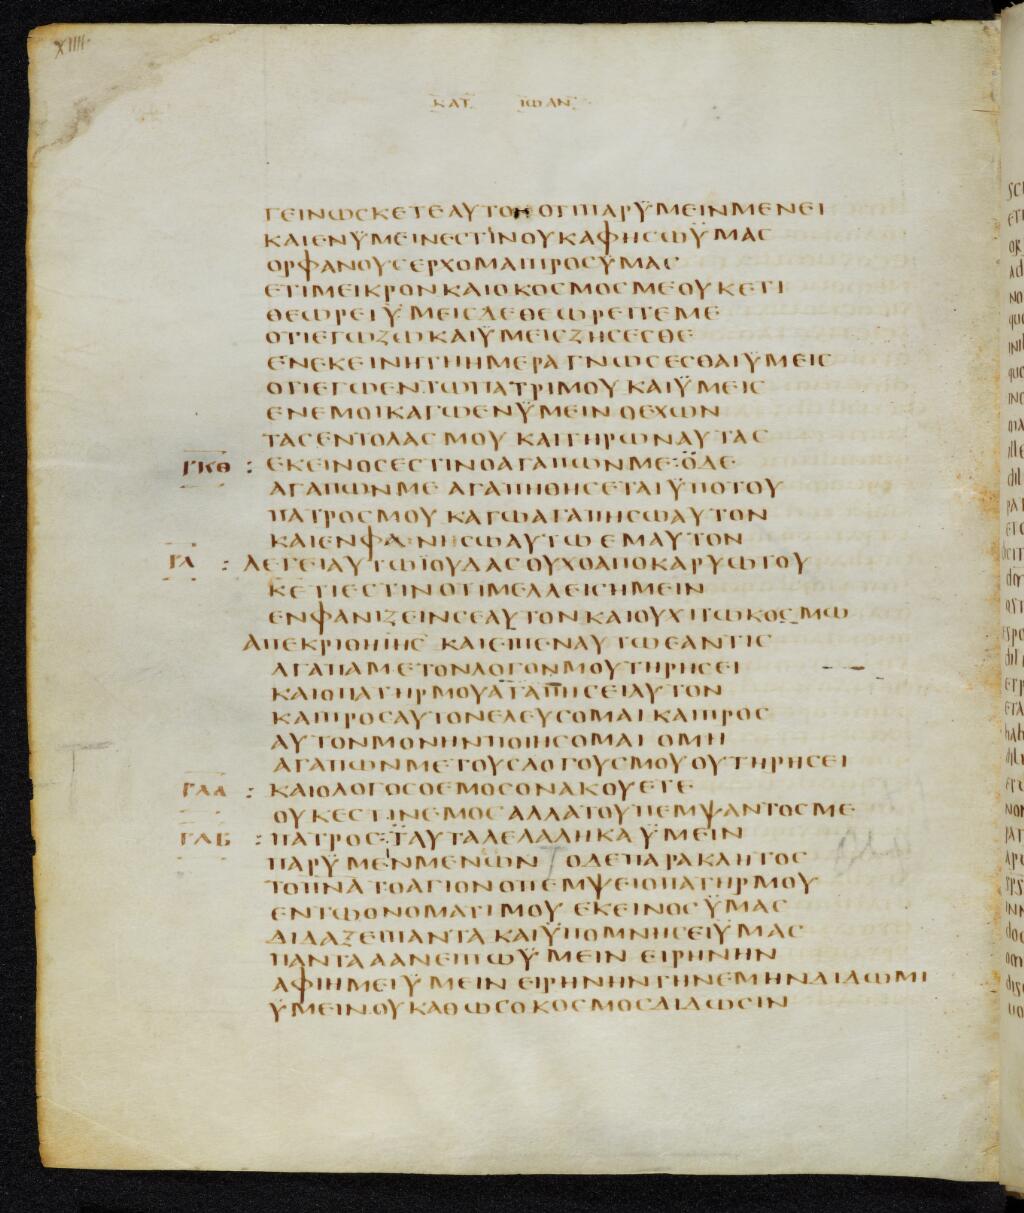 XIIII·
ΚΑΤ ΙΩΑΝ
ΓΕΙΝΩΣΚΕΤΕΑΥΤΟΝΟΤΙΠΑΡΫΜΕΙΝΜΕΝΕΙ
ΚΑΙΕΝΫΜΕΙΝΕΣΤΙΝΟΥΚΑΦΗΣΩΫΜΑΣ
ΟΡΦΑΝΟΥΣΕΡΧΟΜΑΙΠΡΟΣΫΜΑΣ
ΕΤΙΜΕΙΚΡΟΝΚΑΙΟΚΟΣΜΟΣΜΕΟΥΚΕΤΙ
ΘΕΩΡΕΙΫΜΕΙΣΔΕΘΕΩΡΕΙΤΕΜΕ
ΟΤΙΕΓΩΖΩΚΑΙΫΜΕΙΣΖΗΣΕΣΘΕ
ΕΝΕΚΕΙΝΗΤΗΗΜΕΡΑΓΝΩΣΕΣΘΑΙΫΜΕΙΣ
ΟΤΙΕΓΩΕΝΤΩΠΑΤΡΙΜΟΥ ΚΑΙΫΜΕΙΣ
ΕΝΕΜΟΙΚΑΓΩΕΝΫΜΕΙΝ ΟΕΧΩΝ
ΤΑΣΕΝΤΟΛΑΣΜΟΥ ΚΑΙΤΗΡΩΝΑΥΤΑΣ
ΡΚΘ : ΕΚΕΙΝΟΣΕΣΤΙΝΟΑΓΑΠΩΝΜΕ:ΟΔΕ
ΑΓΑΠΩΝΜΕ ΑΓΑΠΗΘΗΣΕΤΑΙΫΠΟΤΟΥ
ΠΑΤΡΟΣΜΟΥ ΚΑΓΩΑΓΑΠΗΣΩΑΥΤΟΝ
ΚΑΙΕΝΦΑΝΗΣΩΑΥΤΩΕΜΑΥΤΟΝ
ΡΛ : ΛΕΓΕΙΑΥΤΩΪΟΥΔΑΣΟΥΧΟΑΠΟΚΑΡΥΩΤΟΥ
ΚΕΤΙΕΣΤΙΝΟΤΙΜΕΛΛΕΙΣΗΜΕΙΝ
ΕΝΦΑΝΙΖΕΙΝΣΕΑΥΤΟΝΚΑΙΟΥΧΙΤΩΚΟΣΜΩ
ΑΠΕΚΡΙΘΗΙΗΣ ΚΑΙΕΙΠΕΝΑΥΤΩΕΑΝΤΙΣ
ΑΓΑΠΑΜΕΤΟΝΛΟΓΟΝΜΟΥΤΗΡΗΣΕΙ
ΚΑΙΟΠΑΤΗΡΜΟΥΑΓΑΠΗΣΕΙΑΥΤΟΝ
ΚΑΙΠΡΟΣΑΥΤΟΝΕΛΕΥΣΟΜΑΙ ΚΑΙΠΡΟΣ
ΑΥΤΟΝΜΟΝΗΝΠΟΙΗΣΟΜΑΙ ΟΜΗ
ΑΓΑΠΩΝΜΕΤΟΥΣΛΟΓΟΥΣΜΟΥΟΥΤΗΡΗΣΕΙ
ΡΛΑ : ΚΑΙΟΛΟΓΟΣΟΕΜΟΣΟΝΑΚΟΥΕΤΕ
ΟΥΚΕΣΤΙΝΕΜΟΣΑΛΛΑΤΟΥΠΕΜΨΑΝΤΟΣΜΕ
ΡΛΒ : ΠΑΤΡΟΣ:ΤΑΥΤΑΛΕΛΑΛΗΚΑΫΜΕΙΝ
ΠΑΡΫΜΕΙΝΜΕΝΩΝ ΟΔΕΠΑΡΑΚΛΗΤΟΣ
ΤΟΠΝΑΤΟΑΓΙΟΝΟΠΕΜΨΕΙΟΠΑΤΗΡΜΟΥ
ΕΝΤΩΟΝΟΜΑΤΙΜΟΥ ΕΚΕΙΝΟΣΫΜΑΣ
ΔΙΔΑΞΕΙΠΑΝΤΑ ΚΑΙΫΠΟΜΝΗΣΕΙΫΜΑΣ
ΠΑΝΤΑΑΑΝΕΙΠΩΫΜΕΙΝ ΕΙΡΗΝΗΝ
ΑΦΙΗΜΕΙΫΜΕΙΝ ΕΙΡΗΝΗΝΤΗΝΕΜΗΝΔΙΔΩΜΙ
ΫΜΕΙΝ.ΟΥΚΑΘΩΣΟΚΟΣΜΟΣΔΙΔΩΣΙΝ